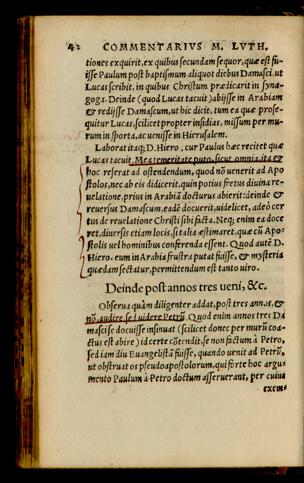 42 COMMENTARIVS M. LVTH.
tiones exquirit, ex quibus secundam sequor, quæ est fu-
isse Paulum post baptismum aliquot diebus Damasci, ut
Lucas scribit, in quibus Christum prædicarit in syna-
goga. Deinde (quod Lucas tacuit) abijsse in Arabiam
& redijsse Damascum, ut hic dicit, tum ea quæ prose-
quitur Lucas, scilicet propter insidias, missum per mu-
rum in sporta, ac uenisse in Hierusalem.
Laborat itaq; D. Hiero, cur Paulus hæc recitet quæ
Lucas tacuit. Mea temeritate puto, sicut omnia, ita &
hoc referat ad ostendendum, quod nō uenerit ad Apo
stolos, nec ab eis didicerit, quin potius fretus diuina re-
uelatione, prius in Arabiā docturus abierit: deinde &
reuersus Damascum, eadē docuerit, uidelicet, adeò cer
tus de reuelatione Christi sibi facta. Neq; enim ea doce
ret, diuersis etiam locis, si talia æstimaret, quæ cū Apo-
stolis uel hominibus conferenda essent. Quod autē D.
Hiero. eum in Arabia frustra putat fuisse, & mysteria
quædam sectatur, permittendum est tanto uiro.
Deinde post annos tres ueni, &c.
Obserua quàm diligenter addat, post tres annos, &
nō, audire sed uidere Petrū. Quod enim annos tres Da
masci se docuisse insinuat (scilicet donec per murū coa-
ctus est abire) id certe cōtendit, se non factum à Petro,
sed iam diu Euangelistā fuisse, quando uenit ad Petrū,
ut obstruat os pseudoapostolorum, qui forte hoc argu-
mento Paulum à Petro doctum asseruerant, per cuius
exem-